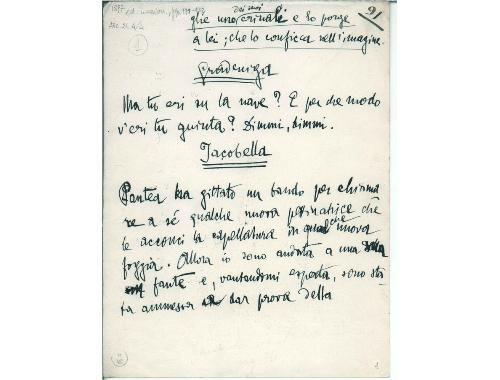 dei suoi
glie uno crinale e lo porge
a lei; che lo conficca nell'imagine.
91
1
Gradeniga
Ma tu eri su la nave? E per che modo
v'eri tu giunta? Dimmi, dimmi.
Jacobella
Pantea ha gittato un bando per chiama
re a sé qualche nuova pettinatrice che
le acconci la capellatura in qualche nuova
foggia. Allora io sono andata a una
fante e, vantandomi esperta, sono sta
ta ammessa a dar prova della